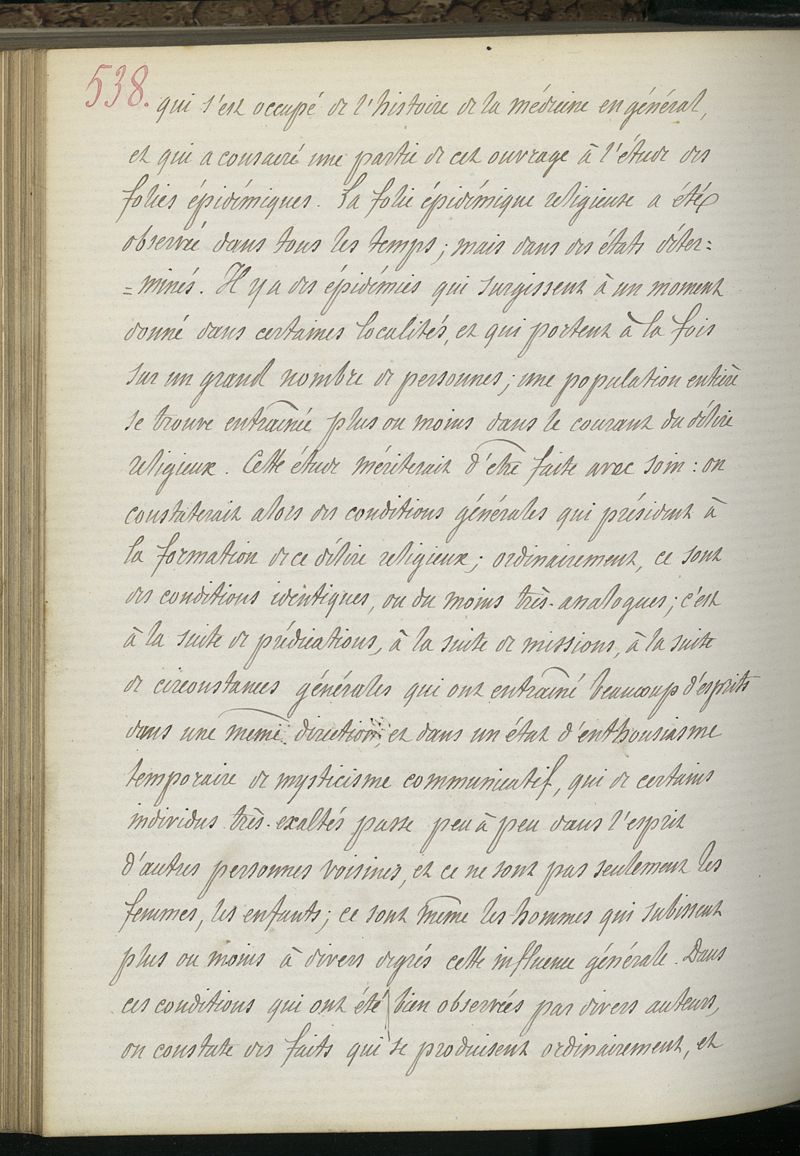 538.
qui s'est occupé de l'histoire de la médecine en général,
et qui a consacré une partie de cet ouvrage à l'étude des
folies épidémiques. La folie épidémique religieuse a été
observée dans tous les temps; mais dans des états déter=
=minés. Il y a des épidémies qui surgissent à un moment
donné dans certaines localités, et qui portent à la fois
sur un grand nombre de personnes; une population entière
se trouve entraînée plus ou moins dans le courant du délire
religieux. Cette étude mériterait d'être faite avec soin: on
constaterait alors des conditions générales qui président à
la formation de ce délire religieux; ordinairement, ce sont
des conditions identiques, ou du moins très-analogues; c'est
à la suite de prédications, à la suite de missions, à la suite
de circonstances générales qui ont entraîné beaucoup d'esprits
dans une même direction, et dans un état d'enthousiasme
temporaire de mysticisme communicatif, qui de certains
individus très-exaltés passe peu à peu dans l'esprit
d'autres personnes voisines, et ce ne sont pas seulement les
femmes, les enfants; ce sont même les hommes qui subissent
plus ou moins à divers degrés cette influence générale. Dans
ces conditions qui ont été bien observées par divers auteurs,
on constate des faits qui se produisent ordinairement, et